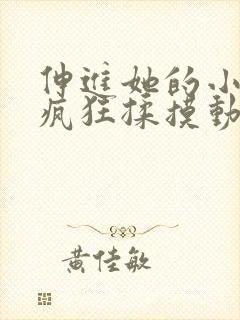 伸進她的小
瘋狂揉摸動
黃佳敏